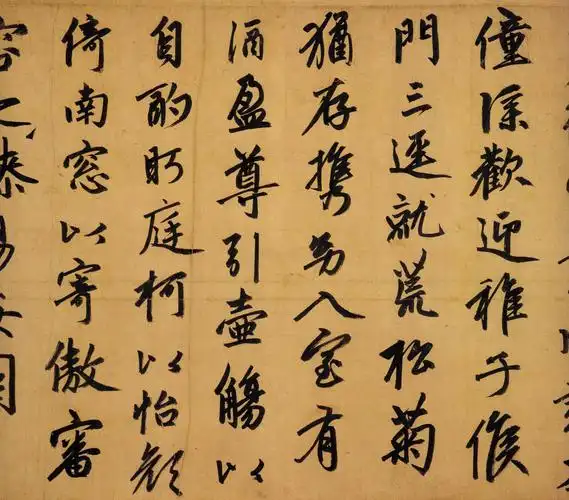 僮僕歡迎稚子候
門三逕就荒松菊
猶存携幼入室有
酒盈尊引壺觴以
自酌眄庭柯以怡顏
倚南窓以寄傲審
容之膝易安園